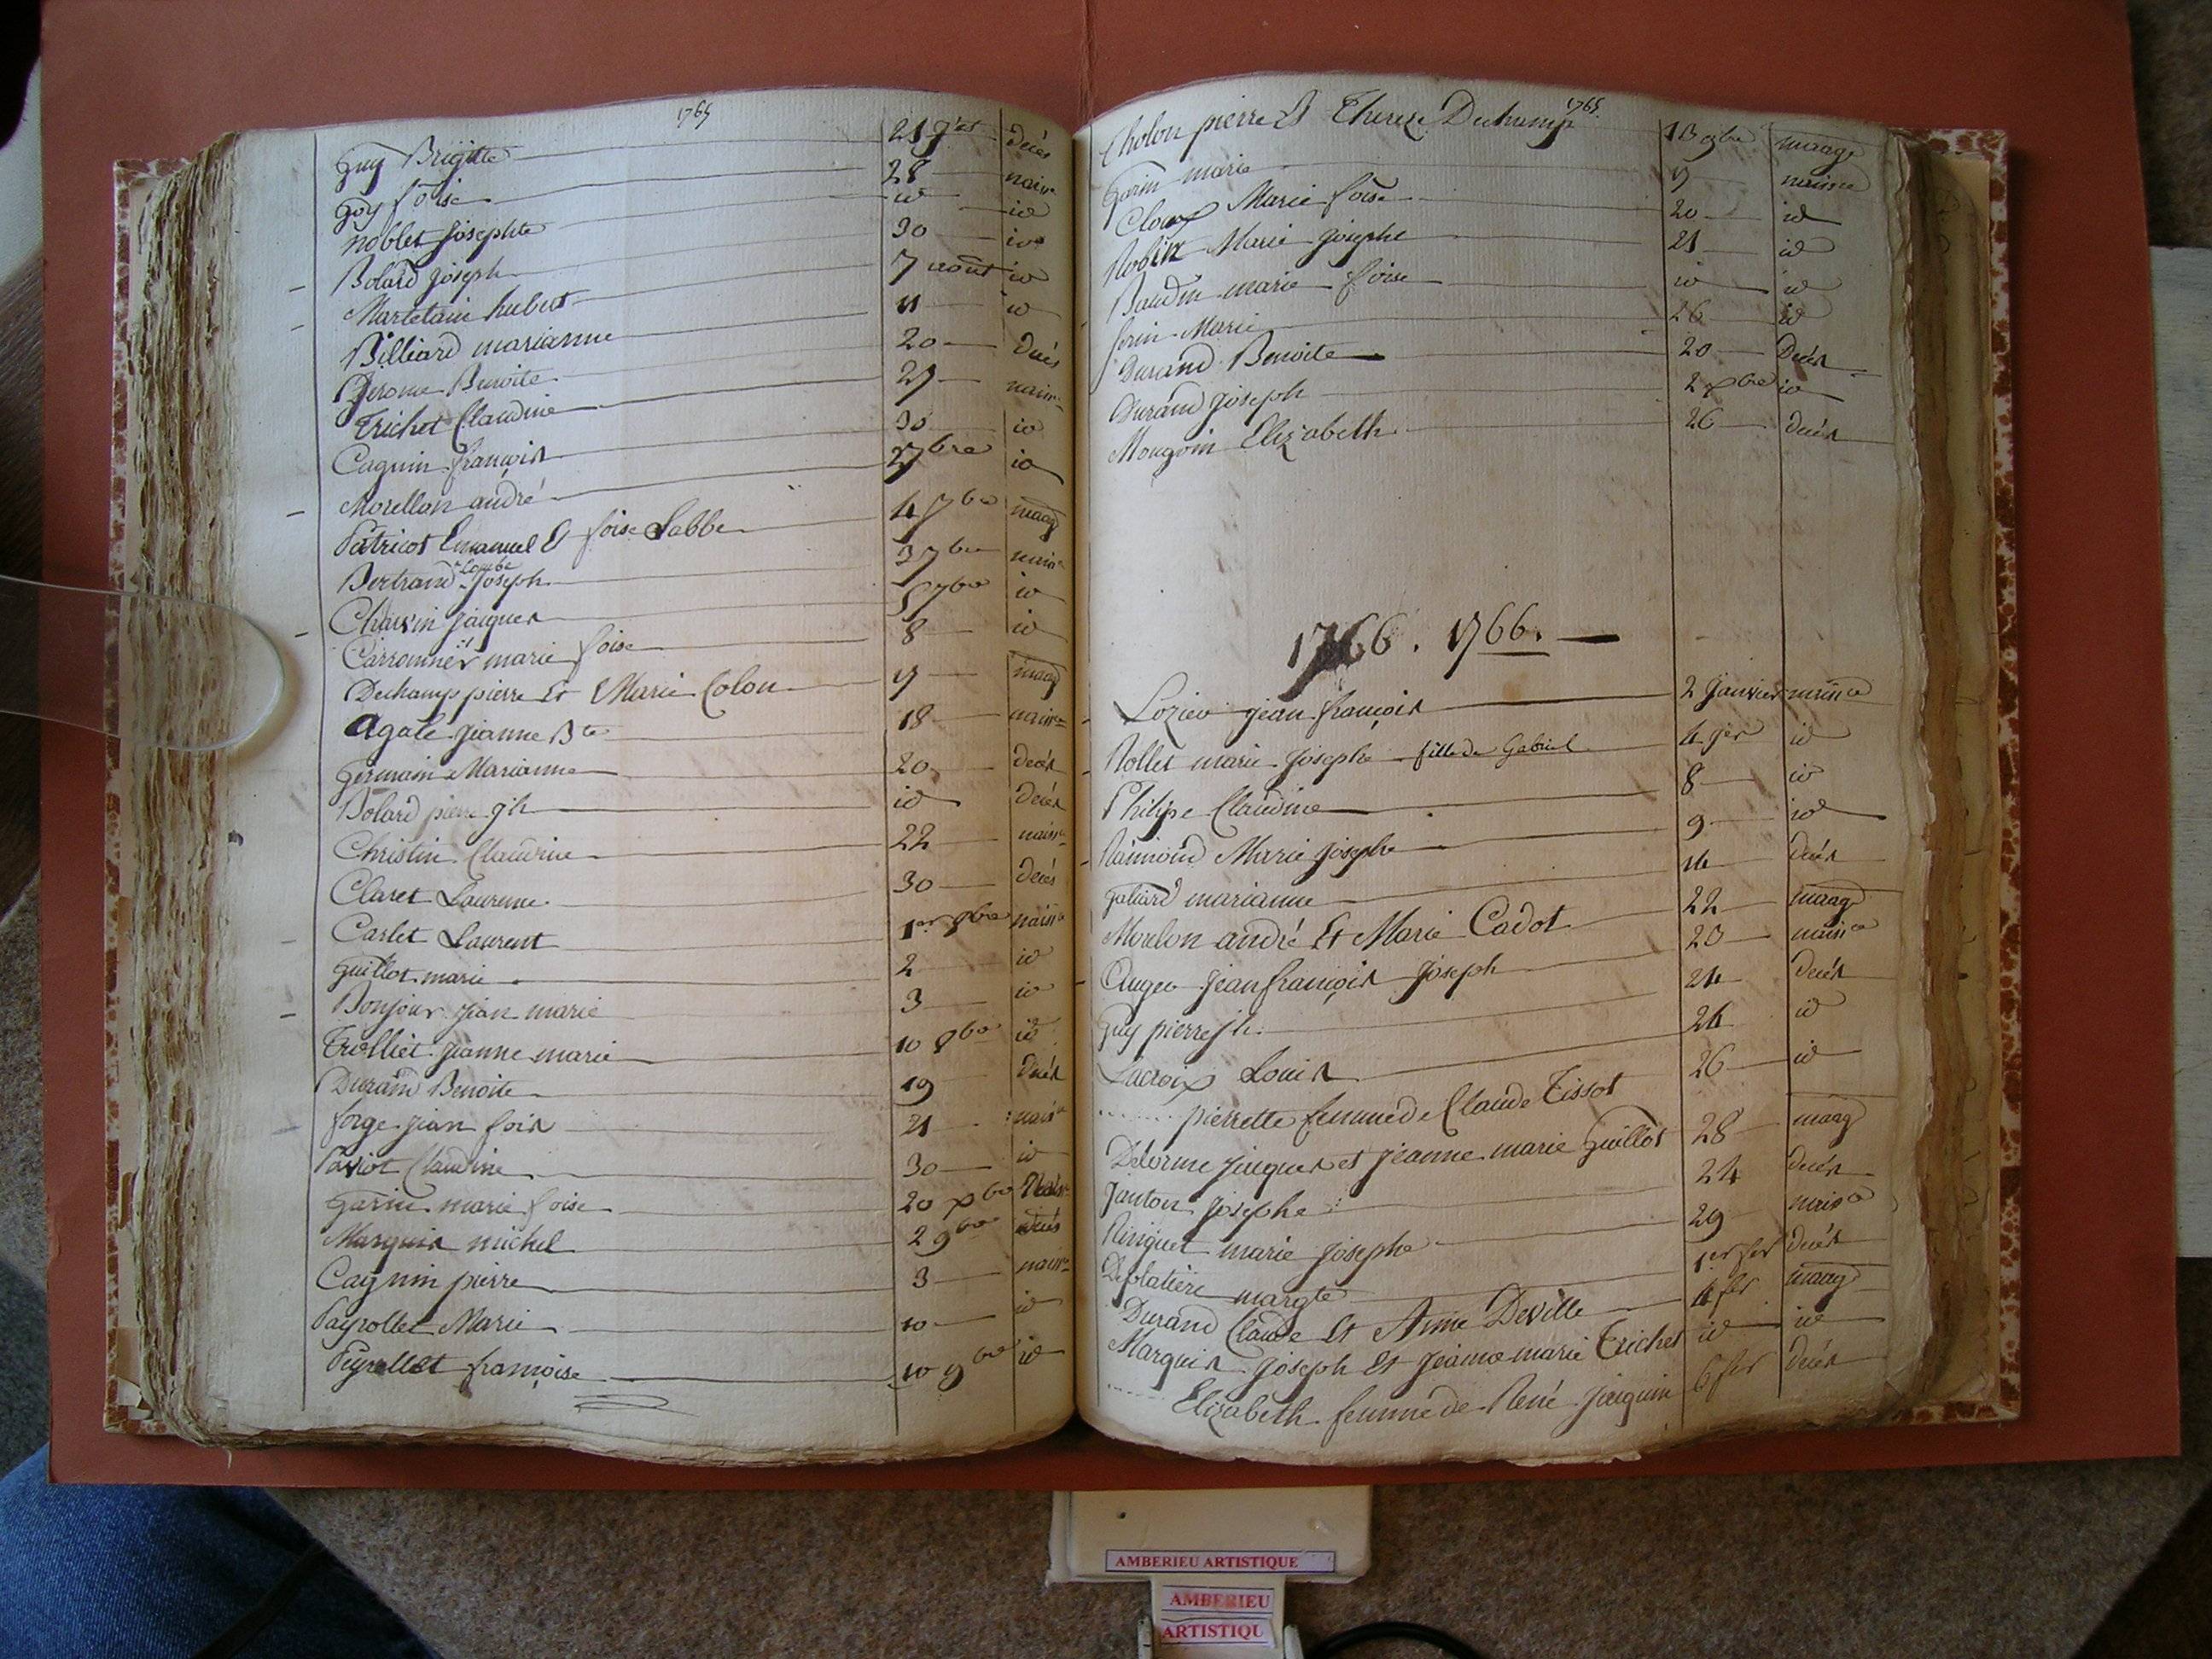 1765
Guy Brigitte 21 décès
Goy foise 28 naisce
Noblet Josephte id id
Bolard Joseph 30 id
Martetain hubert 7 août id
Billiard marianne 11 id
Jerome Benoite 20 décès
Trichet Claudine 27 naisce
Cagnin françois 30 id
Morellon andré 2 7bre id
Patricot Emanuel Et foise Labbe 4 7bre maag
Bertrand Joseph 3 7bre naisce
Chauvin Jacques 5 7bre id
Carronnier marie foise 8 id
Duchamp pierre Et Marie Colon 9 maag
Agate jeanne Bte 18 naisce
Germain Marianne 20 décès
Bolard pierre jh id décès
Christin Claudine 22 naisce
Claret Laurence 30 décès
Carlet Laurent 1er 8bre naisce
Guillot marie 2 id
Bonjour jean marie 3 id
Trolliet jeanne marie 10 8bre id
Durand Benoite 19 décès
forge jean fois 21 naisce
Paviot Claudine 30 id
Garin marie foise 20 xbre
Marquis michel 2 9bre décès
Cagnin pierre 3 naisce
Payrollet Marie 10 id
Peyrollet françoise 10 9bre id
1765.
Cholon pierre Et Thereze Duchamp 18 9bre maage
Garin marie 9 naisce
Cloux Marie foise 20 id
Robin Marie Josephe 21 id
Baudin marie foise id id
forin Marie 26 id
Durand Benoite 20 Décès
Durand Joseph 2 xbre id
Mougoin Elizabeth 26 décès
1766. 1766.
Lozier jean françois 2 Janvier naisce
Rollet marie josephe fille de Gabriel 4 jer id
Philipe Claudine 8 id
Raimond Marie josephe 9 id
Galiard marianne 14 décès
Morelon andré Et Marie Cadot 22 maag
Auger jean françois joseph 23 naisce
Guy pierre jh. 24 décès
Lacroix Louis 24 id
....... pierrette femme de Claude Tissot 26 id
Delorme jacques et jeanne marie Guillot 28 maag
Janton josephe 24 décès
Ringuet marie josephe 29 naisce
Deplatière margte 1er fer décès
Durand Claude Et Anne Deville 4 fer maag
Marquis joseph Et jeanne marie Trichet id id
..... Elizabeth femme de René Jacquin 6 fer décès
AMBERIEU ARTISTIQUE
AMBERIEU
ARTISTIQU